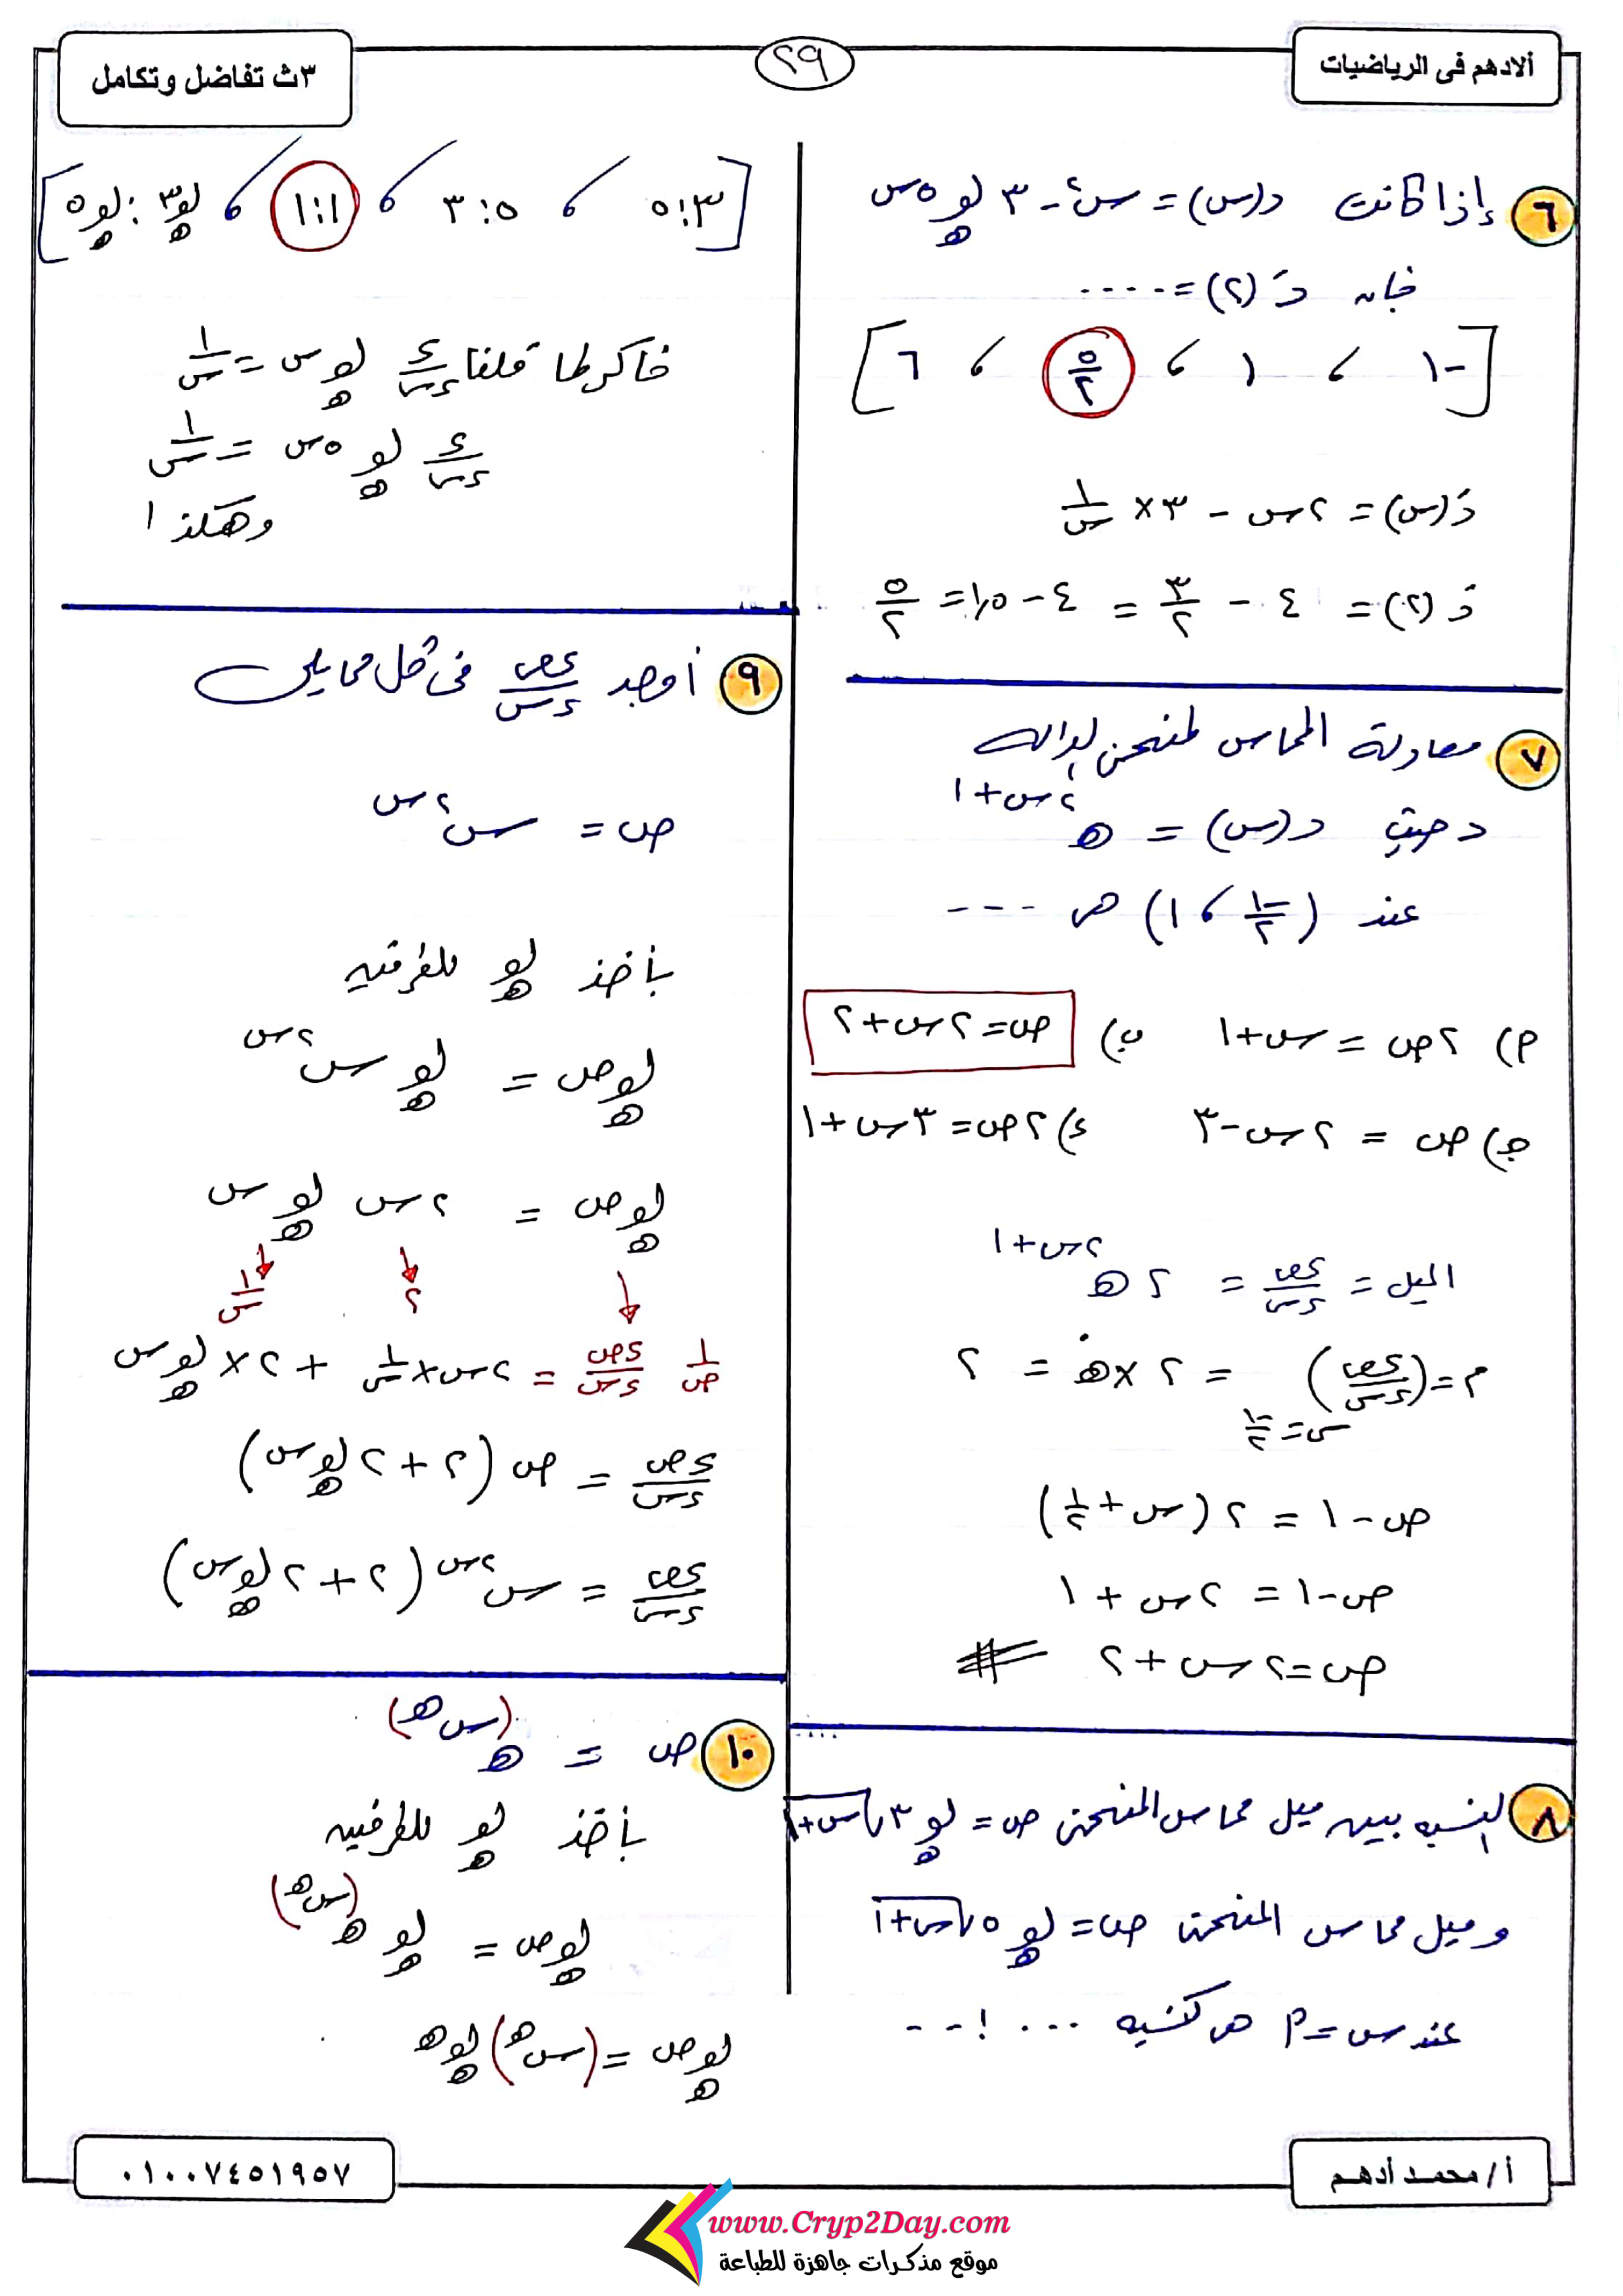 ألادهم فى الرياضيات
٢٩
٣ث تفاضل وتكامل
٦ إذا كانت د(س) = س² - ٣ لو_ه ٥س
فإن دَ(٢) = ....
[ -١ ، ١ ، ٥/٢ ، ٦ ]
دَ(س) = ٢س - ٣ × ١/س
دَ(٢) = ٤ - ٣/٢ = ٤ - ١,٥ = ٥/٢
٧ معادلة المماس لمنحنى الدالة
د حيث د(س) = ه^(٢س+١)
عند (-١/٢ ، ١) هى ---
أ) ٢ص = س+١ ب) ص = ٢س+٢
ج) ص = ٢س-٣ د) ٢ص = ٣س+١
الميل = ءص/ءس = ٢ ه^(٢س+١)
م = (ءص/ءس)_(س=-١/٢) = ٢ × ه^٠ = ٢
ص - ١ = ٢(س + ١/٢)
ص - ١ = ٢س + ١
ص = ٢س + ٢ #
٨ النسبة بين ميل مماس المنحنى ص = لو_ه ٣√(س+١)
وميل مماس المنحنى ص = لو_ه ٥√(س+١)
عند س = أ هى كنسبة ... !--
[ ٣:٥ ، ٥:٣ ، ١:١ ، لو_ه ٣ : لو_ه ٥ ]
فاكر لما قلنا ء/ءس لو_ه س = ١/س
ء/ءس لو_ه ٥س = ١/س
وهكذا
٩ أوجد ءص/ءس فى كل مما يلى
ص = س^(٢س)
بأخذ لو_ه للطرفين
لو_ه ص = لو_ه س^(٢س)
لو_ه ص = ٢س لو_ه س
↓ ↓ ٢ ↓ ١/س
١/ص ءص/ءس = ٢س × ١/س + ٢ × لو_ه س
ءص/ءس = ص (٢ + ٢ لو_ه س)
ءص/ءس = س^(٢س) (٢ + ٢ لو_ه س)
١٠ ص = ه^(س^ه)
بأخذ لو_ه للطرفين
لو_ه ص = لو_ه ه^(س^ه)
لو_ه ص = (س^ه) لو_ه ه
أ/ محمد أدهم
٠١٠٠٧٤٥١٩٥٧
www.Cryp2Day.com
موقع مذكرات جاهزة للطباعة